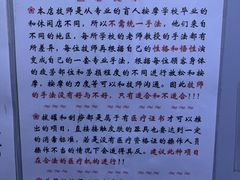 ❀本店技师是从专业的盲人按摩学校毕业的
和休闲店不同，所以不需统一手法，他们来自
不同的地区，每所学校的老师教导的手法都有
所差异，每位技师再根据自己的性格和悟性演
变而成自己的一套专业手法，结合每位顾客身体
的疲劳部位和劳损程度的不同进行放松和按
摩，按摩的力度可以和技师沟通。因此技师
的手法没有好与不好，只有适合和不适合!!!
❀拔罐和刮痧都是属于有医疗证书才可以推
出的项目，直接接触皮肤的器具必要达到一定
的消毒标准，若是没有医疗资格证的操作人员
操作不当的情况会造成菌感染。建议此种项目
在合法的医疗机构进行!!!